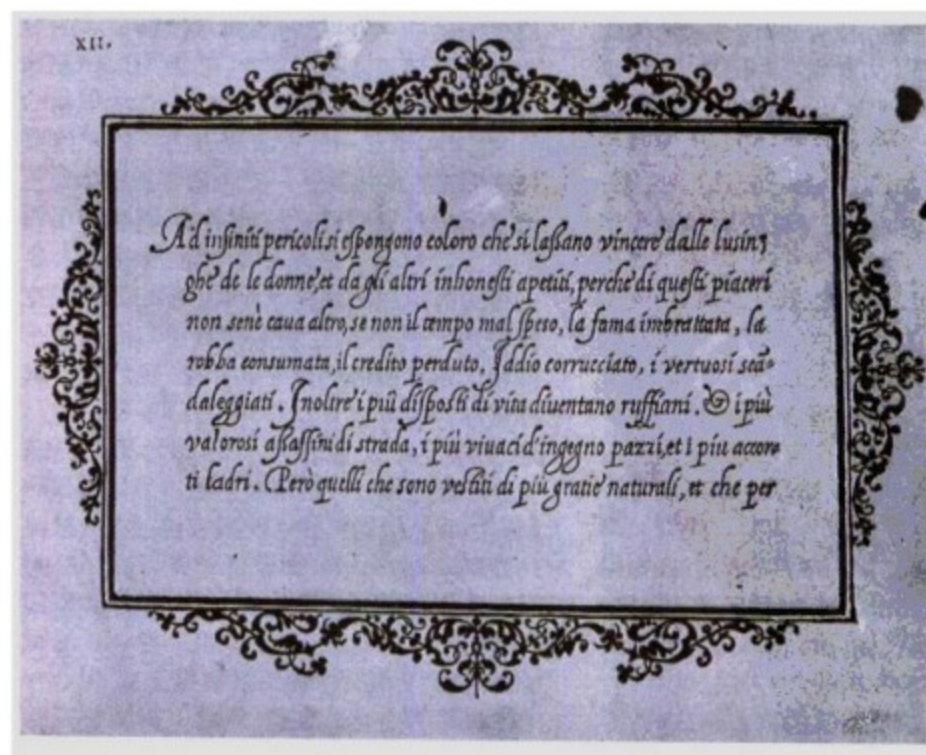 XII.
Ad infiniti pericoli si espongono coloro che si lassano vincere dalle lusin
ghe de le donne, et da gli altri inhonesti apetiti, perche di questi piaceri
non senè caua altro, se non il tempo mal speso, la fama imbrattata, la
robba consumata, il credito perduto, Iddio corrucciato, i vertuosi scā-
daleggiati. Inoltre i più disposti di vita diuentano ruffiani. & i più
valorosi assassini di strada, i più viuaci d'ingegno pazzi, et i piu accor-
ti ladri. Però quelli che sono vestiti di più gratie naturali, et che per